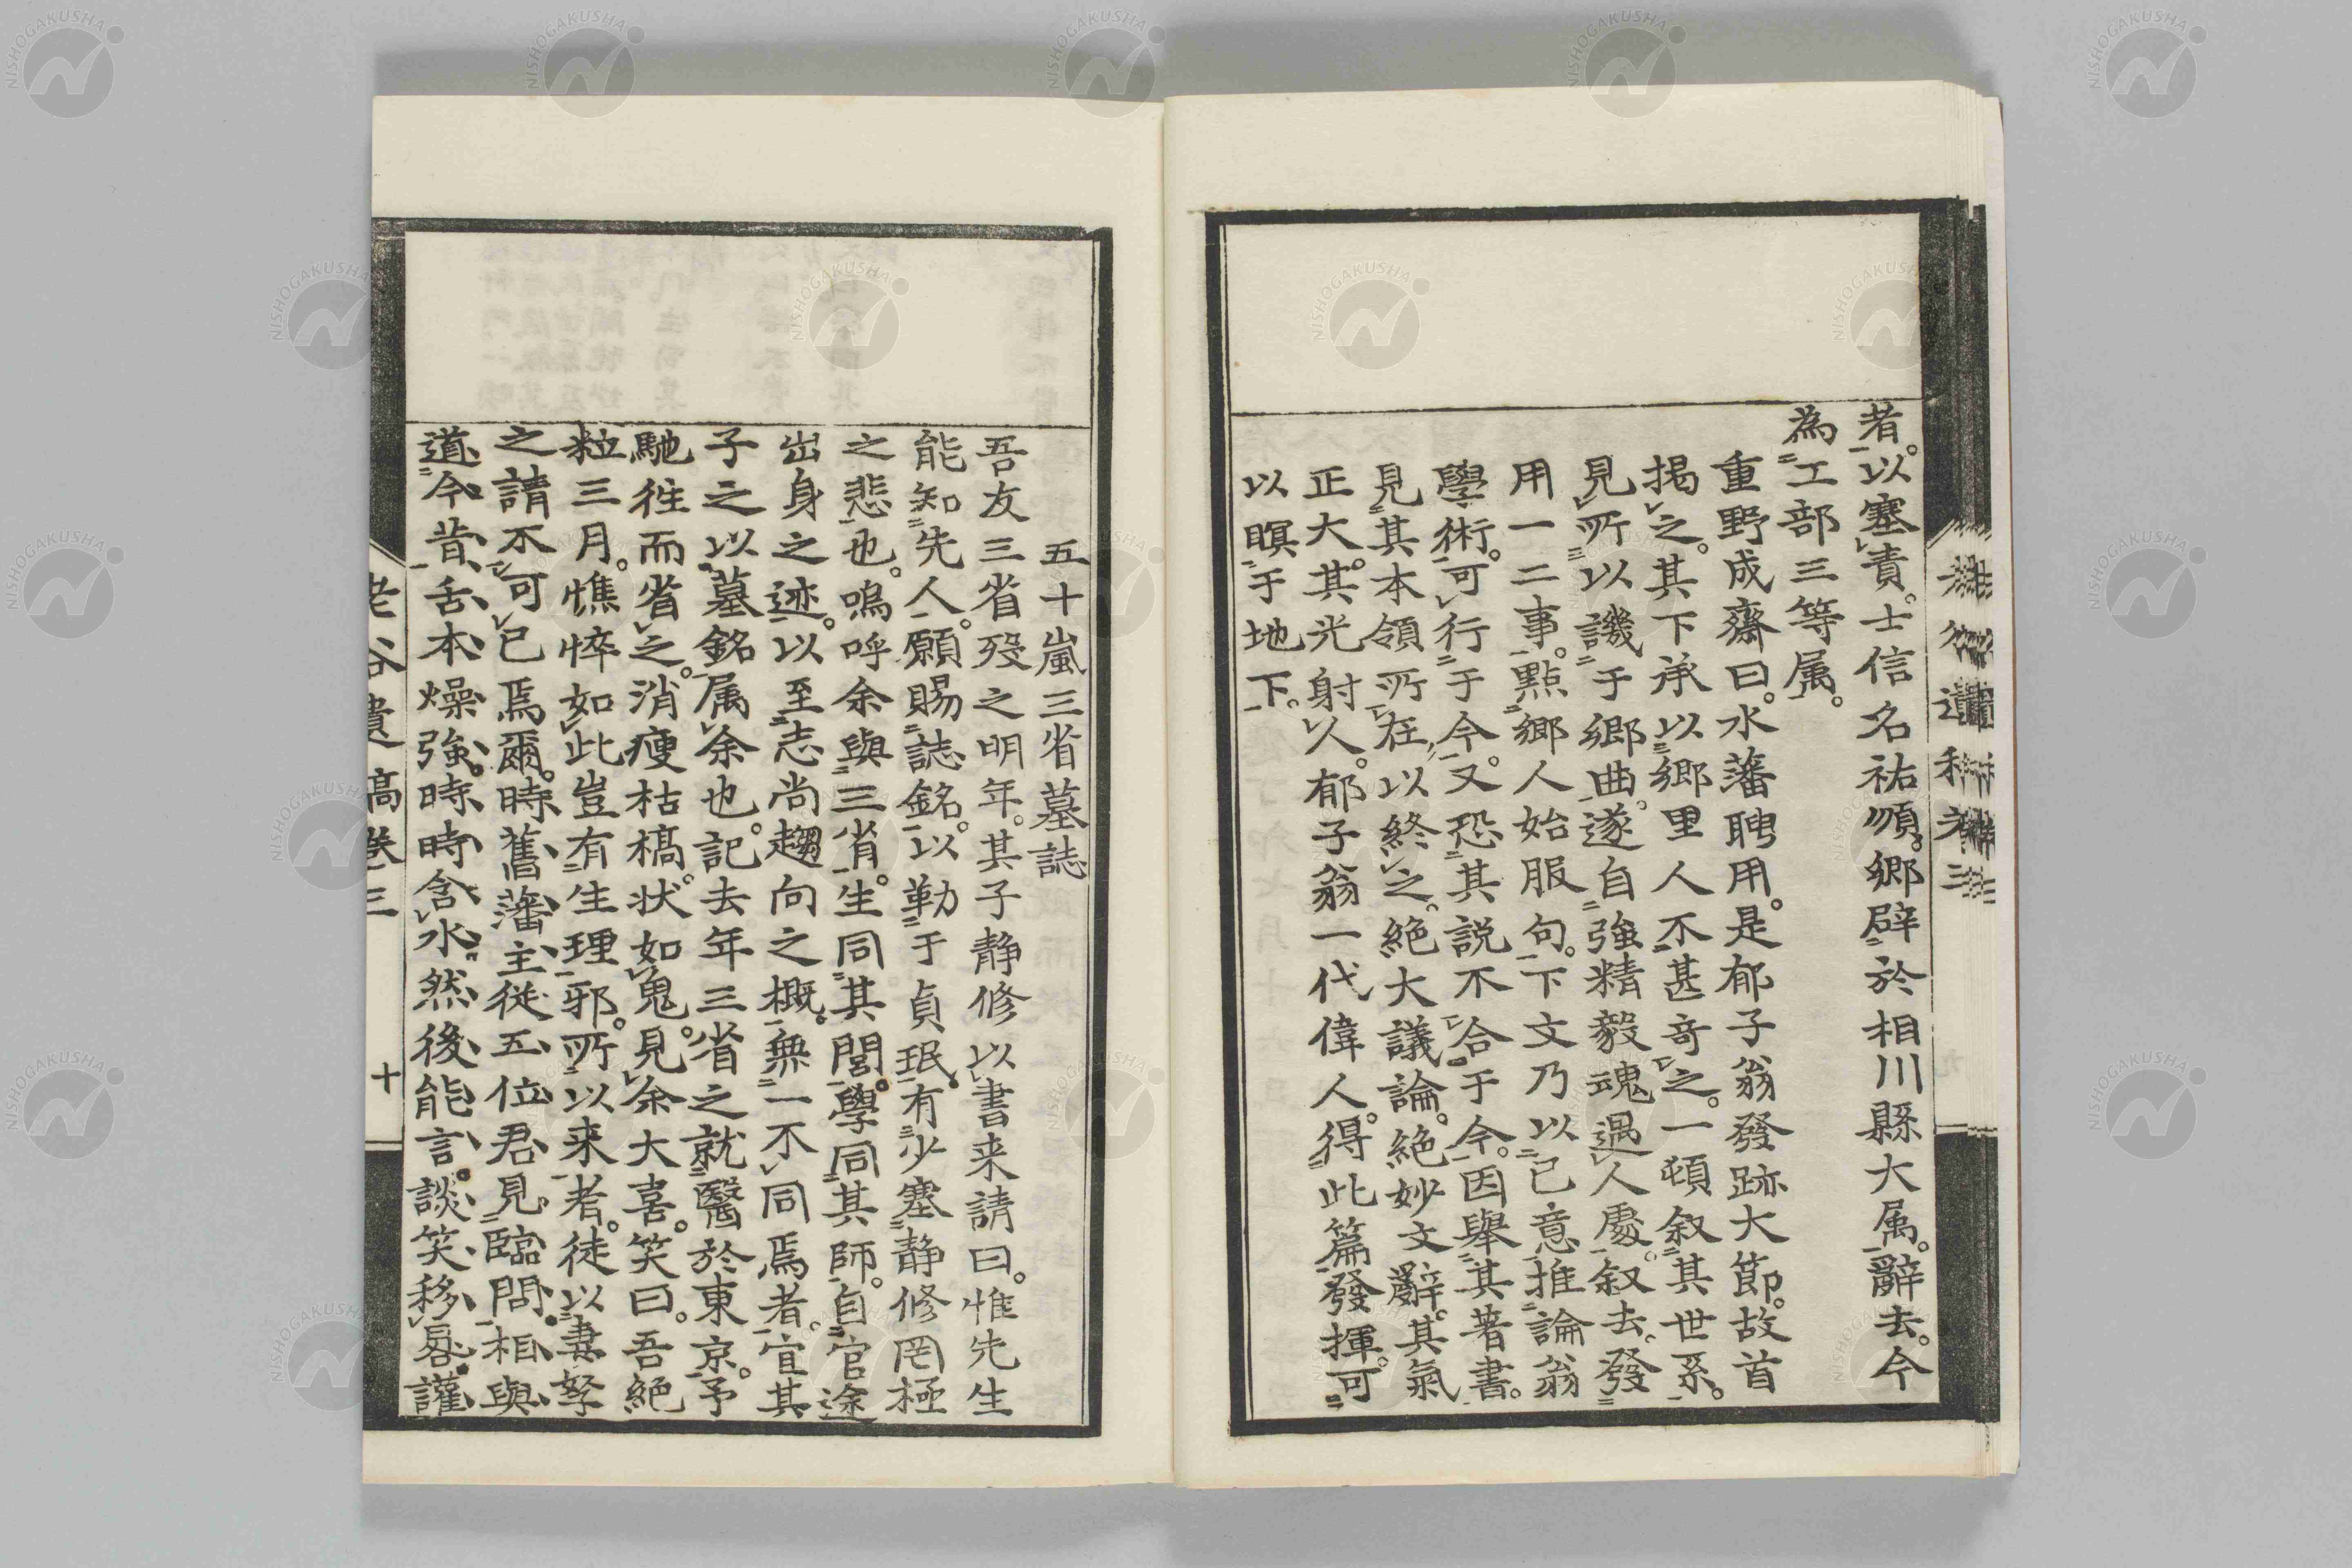 者。以塞責。士信名祐順。郷辟於相川縣大属。辭去。今
為工部三等属。
重野成齋曰。水藩聘用。是郁子翁發跡大節。故首
掲之。其下承以郷里人不甚奇之。一頓叙其世系。
見所以譏于郷曲。遂自強精毅魂過人處。叙去。發
用一二事。點郷人始服句。下文乃以已意推論翁
學術。可行于今。又恐其説不合于今。因舉其著書。
見其本領所在。以終之。絶大議論。絶妙文辭。其氣
正大。其光射人。郁子翁一代偉人。得此篇發揮。可
以瞑于地下。
五十嵐三省墓誌
吾友三省歿之明年。其子静修以書来請曰。惟先生
能知先人。願賜誌銘。以勒于貞珉。有少塞静修罔極
之悲也。嗚呼余與三省。生同其閭。學同其師。自官途
出身之迹。以至志尚趨向之概。無一不同焉者。宜其
子之以墓銘属余也。記去年三省之就醫於東京。予
馳往而省之。消痩枯槁。状如鬼。見余大喜。笑曰。吾絶
粒三月。憔悴如此豈有生理邪。所以来者。徒以妻孥
之請不可已焉爾。時舊藩主従五位君見臨問。相與
道今昔。舌本燥強。時時含水。然後能言。談笑移晷。讙
老谷遺稿巻三
十